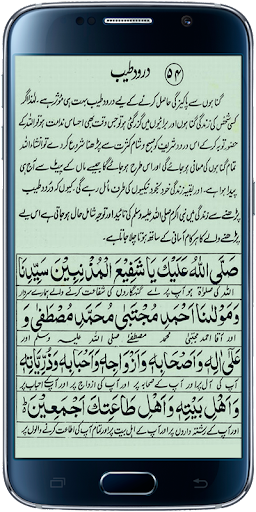 ۵۴ درود طیب
گناہوں سے پاکیزگی حاصل کرنے کے لیے درود طیب بہت ہی مؤثر ہے۔ لہٰذا اگر
کسی شخص کی زندگی گناہوں اور برائیوں میں گزری ہو تو جس وقت بھی احساس ندامت ہو تو اللہ کے
حضور توبہ کر کے اس درود شریف کو صبح و شام کثرت سے پڑھنا شروع کر دے تو انشاء اللہ
تمام گناہوں کی معافی ہو جائے گی اور وہ اس طرح ہو جائے گا جیسے ماں کے پیٹ سے آج ہی
پیدا ہوا ہے۔ اور بقیہ زندگی خود بخود نیکیوں کی طرف مائل رہے گی۔ کیونکہ درود طیب
پڑھنے سے نبی اکرم صلی اللہ علیہ وسلم کی تائید اور توجہ شامل حال ہو جاتی ہے۔ اس لیے اسے
پڑھنے والے کا ہر کام آسانی کے ساتھ ہوتا چلا جاتا ہے۔
صَلَّى اللهُ عَلَيْكَ يَا شَفِيْعَ الْمُذْنِبِيْنَ سَيِّدِنَا
اللہ کی صلوٰۃ ہو آپ پر اے گنہگاروں کی شفاعت کرنے والے ہمارے سردار
وَمَوْلٰنَا اَحْمَدَ مُجْتَبٰى مُحَمَّدٍ مُصْطَفٰى وَ
اور آقا احمد مجتبیٰ محمد مصطفیٰ صلی اللہ علیہ وسلم اور
عَلٰى اٰلِهٖ وَاَصْحَابِهٖ وَاَزْوَاجِهٖ وَاَحْبَابِهٖ وَذُرِّيَّاتِهٖ
آپ کی آل پر اور آپ کے صحابہ پر اور آپ کی ازواج پر اور آپ کے احباب پر
وَاَهْلِ بَيْتِهٖ وَاَهْلِ طَاعَتِكَ اَجْمَعِيْنَ
اور آپ کے رشتہ داروں پر اور آپ کے اہل بیت پر اور تمام آپ کی اطاعت کرنے والوں پر